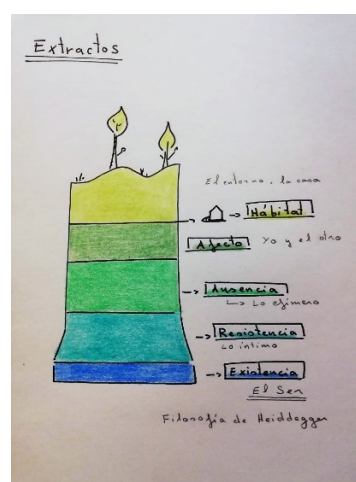 Extractos
El entorno, la casa
Hábitat
Afecto Yo y el otro
Ausencia
Lo efímero
Resistencia
Lo íntimo
Existencia
El Ser
Filosofía de Heiddegger